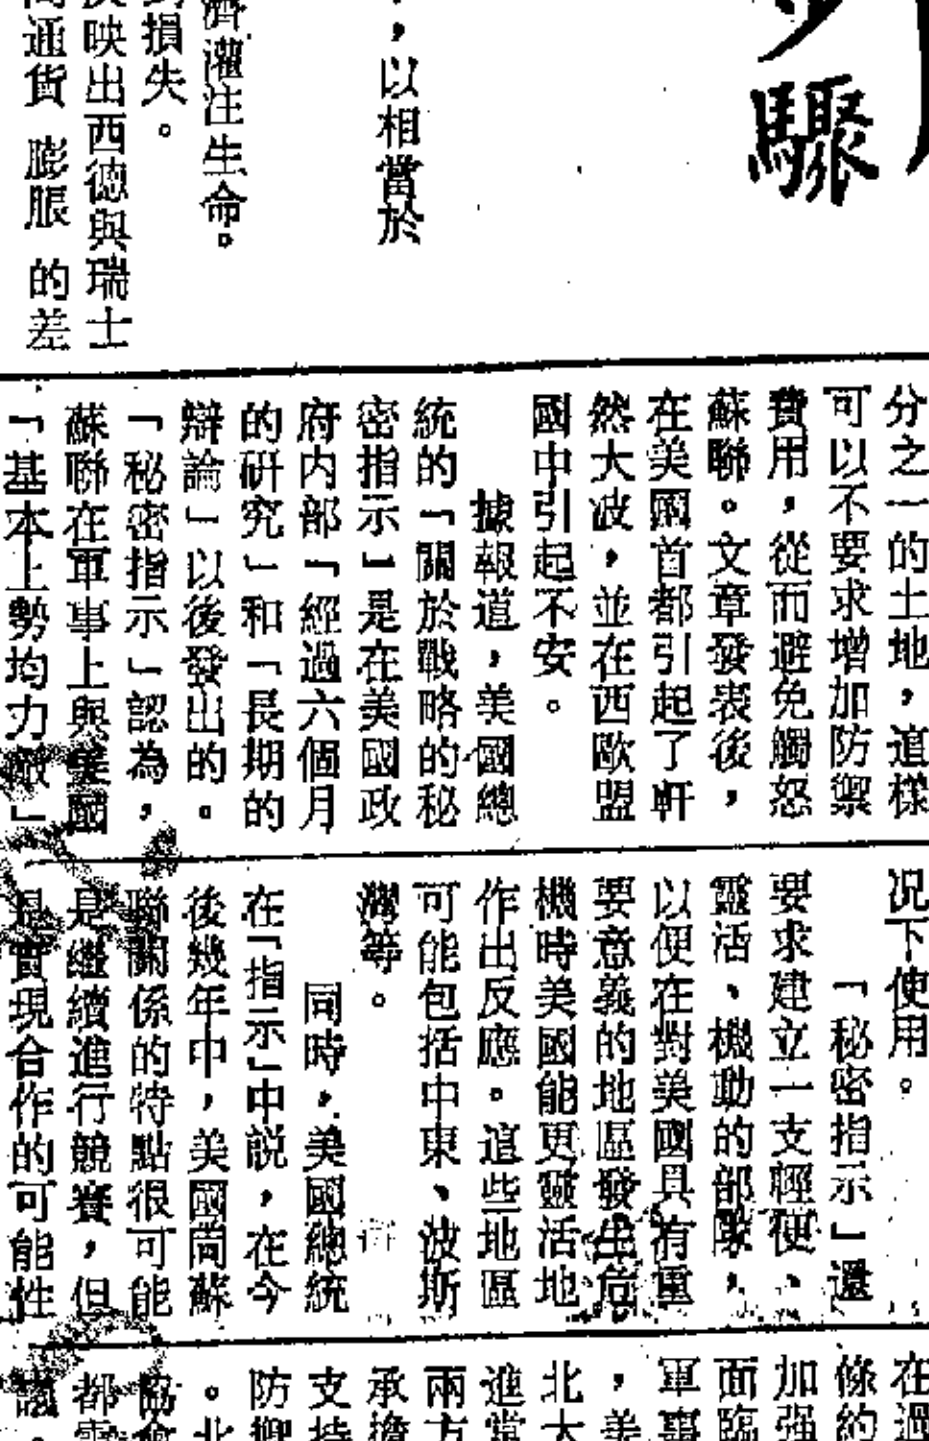 步驟
，以相當於
濟灌注生命。
到損失。
反映出西德與瑞士
通貨膨脹的差
分之一的土地，這樣
可以不要求增加防禦
費用，從而避免觸怒
蘇聯。文章發表後，
在美國首都引起了軒
然大波，並在西歐盟
國中引起不安。
據報道，美國總
統的「關於戰略的秘
密指示」是在美國政
府内部「經過六個月
的研究」和「長期的
辯論」以後發出的。
「秘密指示」認為，
蘇聯在軍事上與美國
「基本上勢均力敵」
况下使用。
「秘密指示」還
要求建立一支輕便、
靈活、機動的部隊，
以便在對美國具有重
要意義的地區發生危
機時美國能更靈活地
作出反應。這些地區
可能包括中東、波斯
灣等。
同時，美國總統
在「指示」中説，在今
後幾年中，美國同蘇
聯關係的特點很可能
是繼續進行競賽，但
是實現合作的可能性
在過
條約
加强
面臨
軍事
，美
北大
進當
兩方
承擔
支持
防禦
。北
協會
都需
議